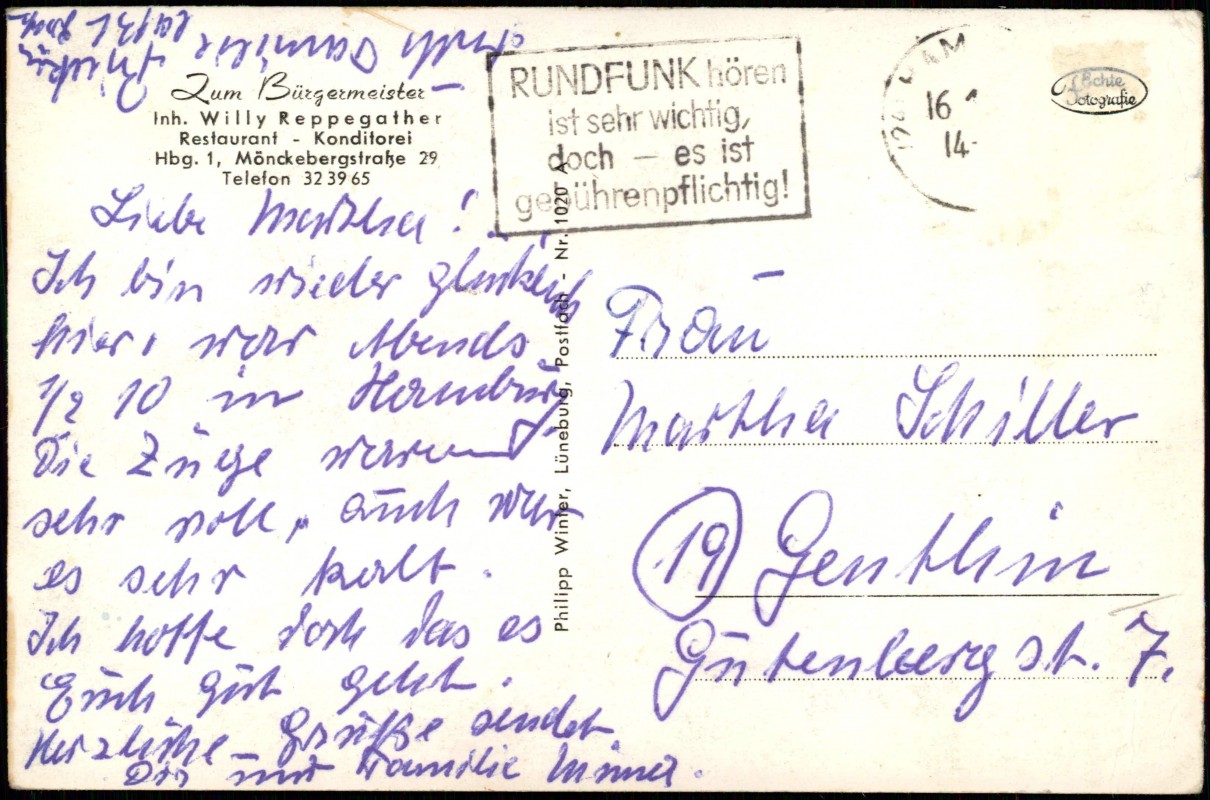 Zum Bürgermeister
Inh. Willy Reppegather
Restaurant - Konditorei
Hbg. 1, Mönckebergstraße 29
Telefon 32 39 65
RUNDFUNK hören
ist sehr wichtig,
doch — es ist
gebührenpflichtig!
16
14-
Echte
Fotografie
Liebe Martha!
Ich bin wieder glücklich
hier, war Abends
1/2 10 in Hamburg
Die Züge waren
sehr voll, auch war
es sehr kalt.
Ich hoffe doch das es
Euch gut geht.
Herzliche Grüße sendet
Dir und Familie Minna.
auch Familie
Philipp Winter, Lüneburg, Postfach - Nr. 1020 A
Frau
Martha Schiller
(19) Genthin
Gutenbergst. 7.